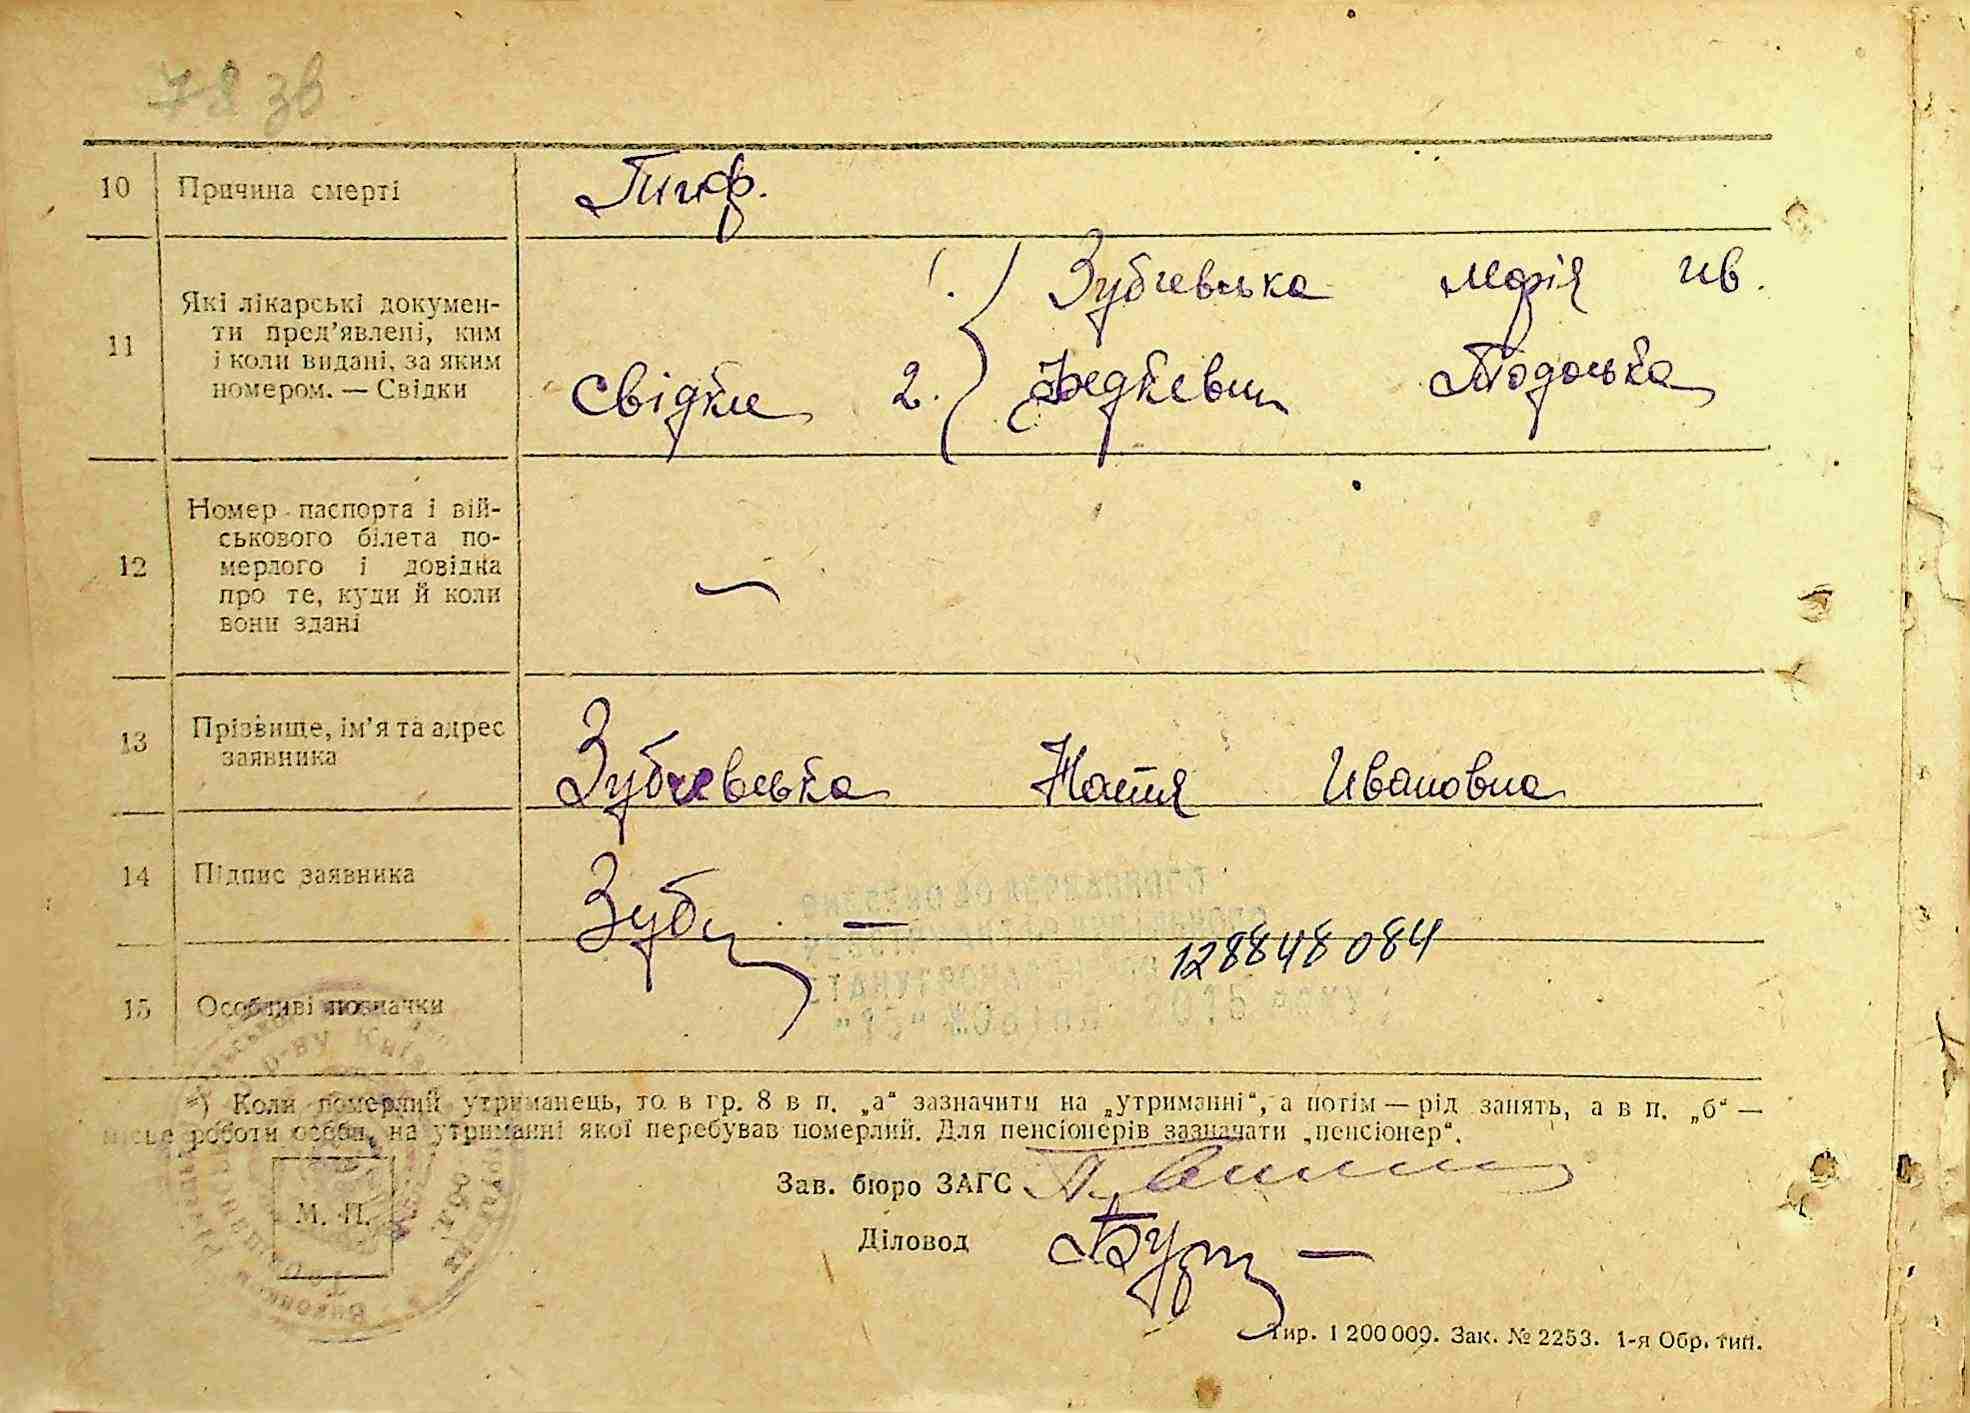 78 зв
10 Причина смерті Тиф.
11 Які лікарські докумен-
ти пред'явлені, ким
і коли видані, за яким
номером. — Свідки
1. Зубчевська Марія Ив.
Свідки 2. Федкевич Тодоська
12 Номер паспорта і вій-
ськового білета по-
мерлого і довідка
про те, куди й коли
вони здані
—
13 Прізвище, ім'я та адрес
заявника
Зубчевська Настя Ивановна
14 Підпис заявника Зуб —
128848084
15 Особливі позначки
*) Коли померлий утриманець, то в гр. 8 в п. „а“ зазначити на „утриманні“, а потім — рід занять, а в п. „б“ —
місце роботи особи, на утриманні якої перебував померлий. Для пенсіонерів зазначати „пенсіонер“.
Зав. бюро ЗАГС
М. П.
Діловод
Тир. 1 200 000. Зак. № 2253. 1-я Обр. тип.